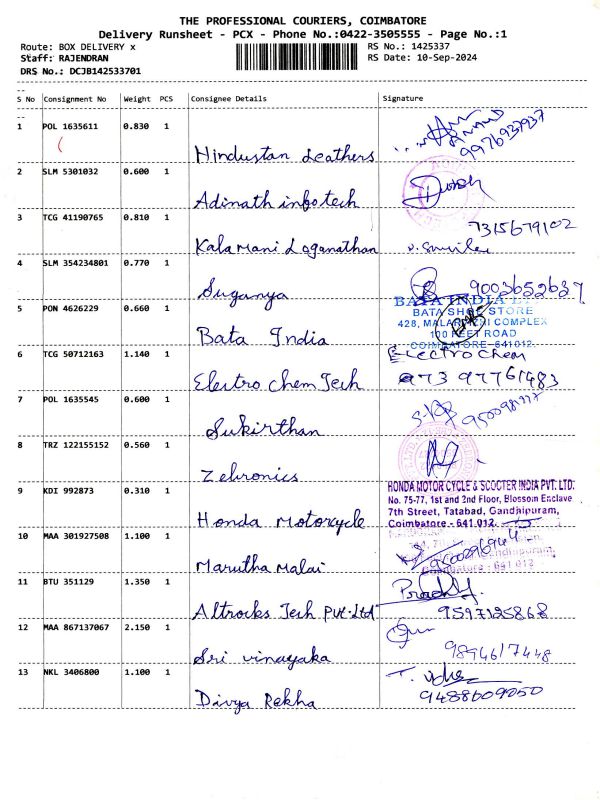 THE PROFESSIONAL COURIERS, COIMBATORE
Delivery Runsheet - PCX - Phone No.:0422-3505555 - Page No.:1
Route: BOX DELIVERY x RS No.: 1425337
Staff: RAJENDRAN RS Date: 10-Sep-2024
DRS No.: DCJB142533701
S No Consignment No Weight PCS Consignee Details Signature
1 POL 1635611 0.830 1
Hindustan Leathers 9976937937
2 SLM 5301032 0.600 1
Adinath infotech
3 TCG 41190765 0.810 1 7315679102
Kalamani Loganathan
4 SLM 354234801 0.770 1
Suganya 9003652637
BATA INDIA
5 PON 4626229 0.660 1 BATA SHOE STORE
428, COMPLEX
100 FEET ROAD
Bata India COIMBATORE-641012.
6 TCG 50712163 1.140 1 Electro Chem
Electro Chem Tech 973 97761483
7 POL 1635545 0.600 1
Sukirthan
8 TRZ 122155152 0.560 1
Zebronics
9 KDI 992873 0.310 1 HONDA MOTOR CYCLE & SCOOTER INDIA PVT. LTD.
No. 75-77, 1st and 2nd Floor, Blossom Enclave
7th Street, Tatabad, Gandhipuram,
Honda Motorcycle Coimbatore - 641 012.
10 MAA 301927508 1.100 1
Marutha Malai
11 BTU 351129 1.350 1
Altrocks Tech Pvt.Ltd 9597125868
12 MAA 867137067 2.150 1
Sri vinayaka 9894617448
13 NKL 3406800 1.100 1
Divya Rekha 9488609050